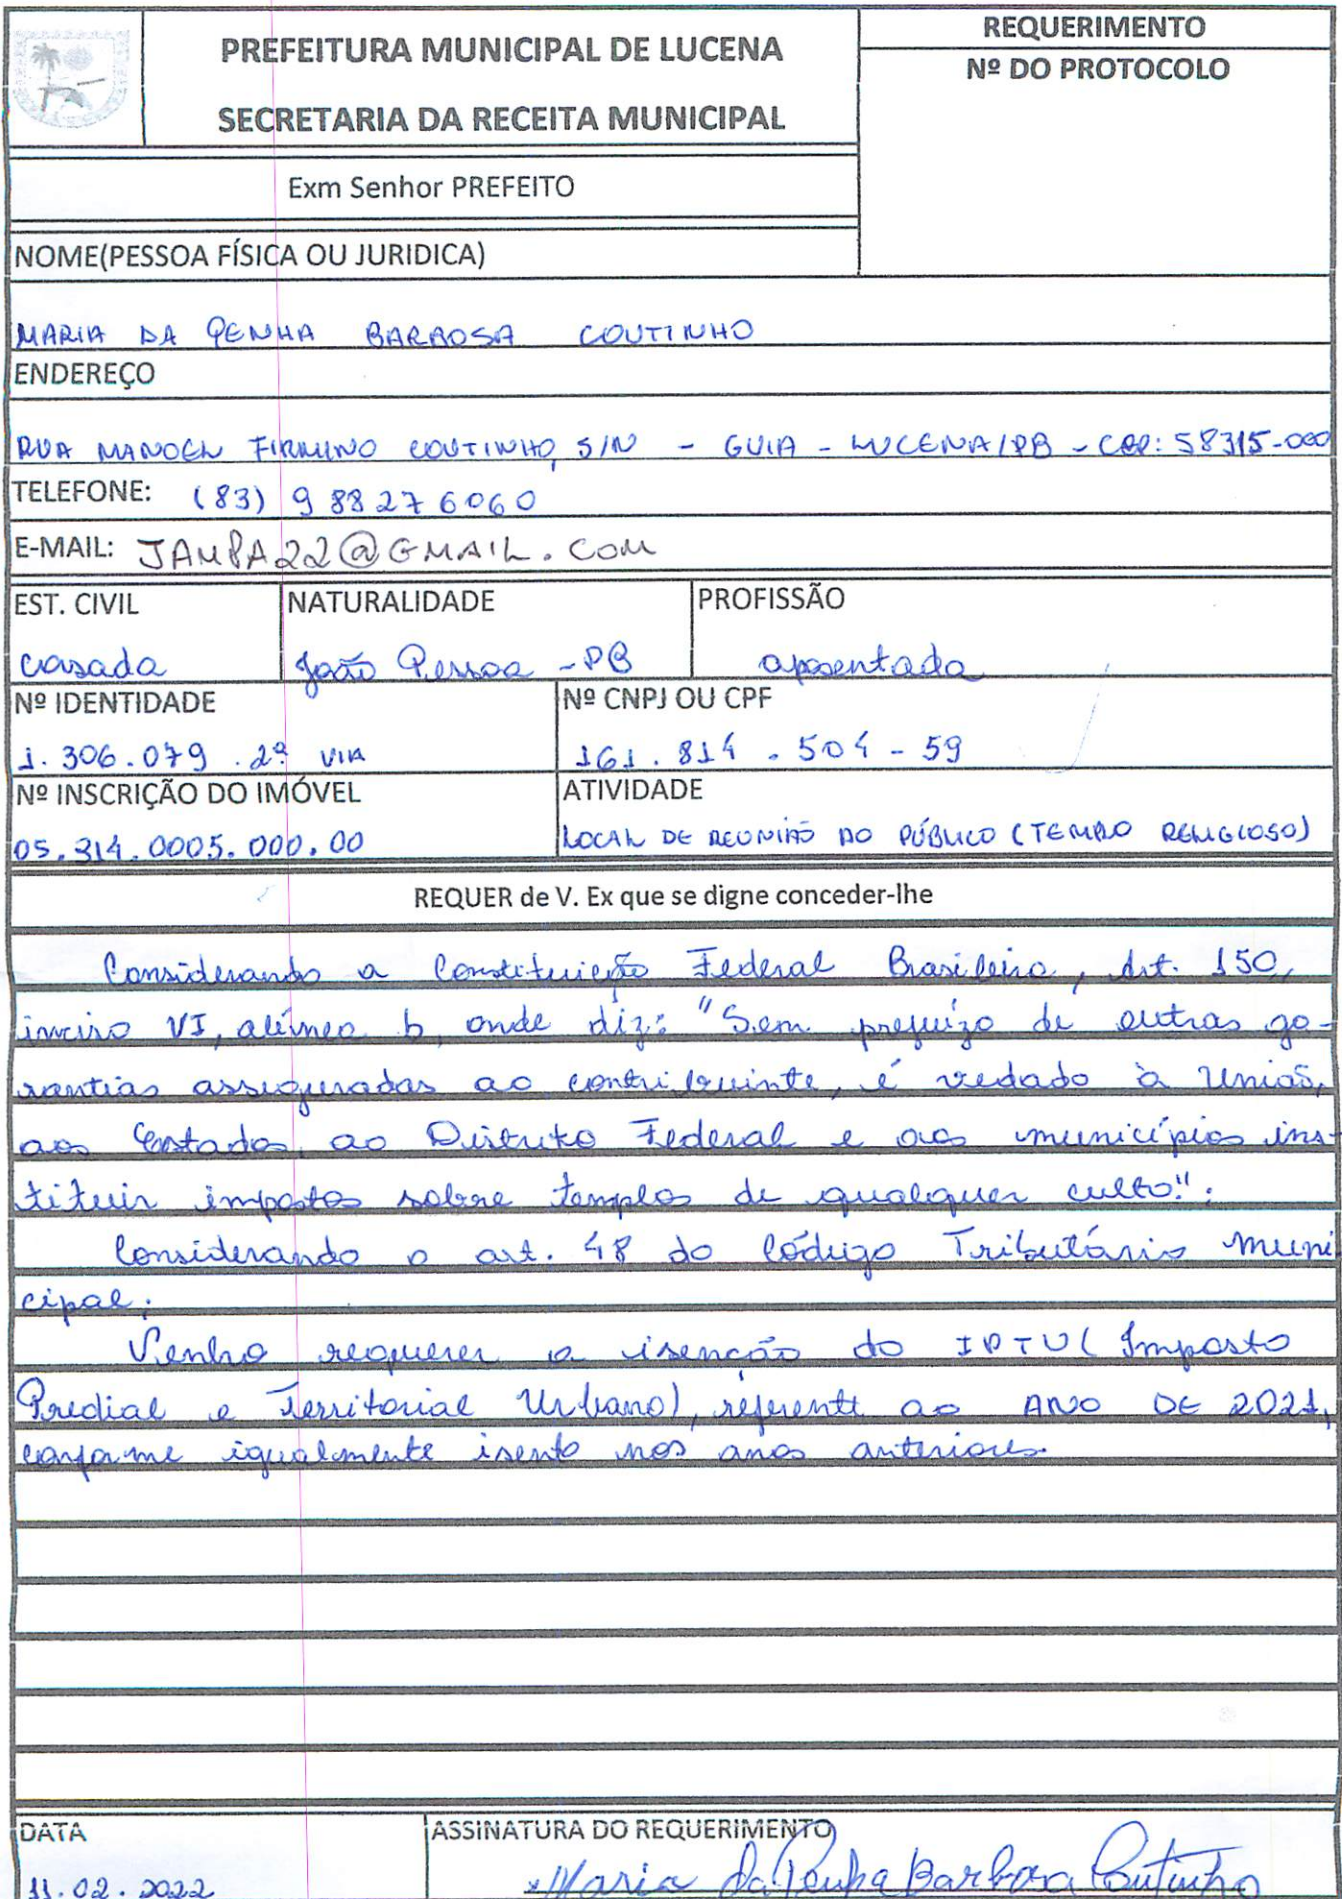 PREFEITURA MUNICIPAL DE LUCENA
SECRETARIA DA RECEITA MUNICIPAL
REQUERIMENTO
Nº DO PROTOCOLO
Exm Senhor PREFEITO
NOME(PESSOA FÍSICA OU JURIDICA)
MARIA DA PENHA BARBOSA COUTINHO
ENDEREÇO
RUA MANOEL FIRMINO COUTINHO, S/N - GUIA - LUCENA/PB - CEP: 58315-000
TELEFONE: (83) 9 88276060
E-MAIL: JAMPA22@GMAIL.COM
EST. CIVIL NATURALIDADE PROFISSÃO
casada João Pessoa - PB aposentada
Nº IDENTIDADE Nº CNPJ OU CPF
1.306.079 .2ª VIA 161.814.504-59
Nº INSCRIÇÃO DO IMÓVEL ATIVIDADE
05.314.0005.000.00 LOCAL DE REUNIÃO AO PÚBLICO (TEMPLO RELIGIOSO)
REQUER de V. Ex que se digne conceder-lhe
Considerando a Constituição Federal Brasileira, Art. 150,
inciso VI, alínea b, onde diz: "Sem prejuízo de outras ga-
rantias asseguradas ao contribuinte, é vedado à União,
aos Estados, ao Distrito Federal e aos municípios ins-
tituir impostos sobre templos de qualquer culto".
Considerando o art. 48 do Código Tributário Muni
cipal;
Venho requerer a isenção do IPTU ( Imposto
Predial e Territorial Urbano), referente ao ANO DE 2021,
conforme igualmente isento nos anos anteriores.
DATA ASSINATURA DO REQUERIMENTO
11.02.2022 Maria da Penha Barbosa Coutinho